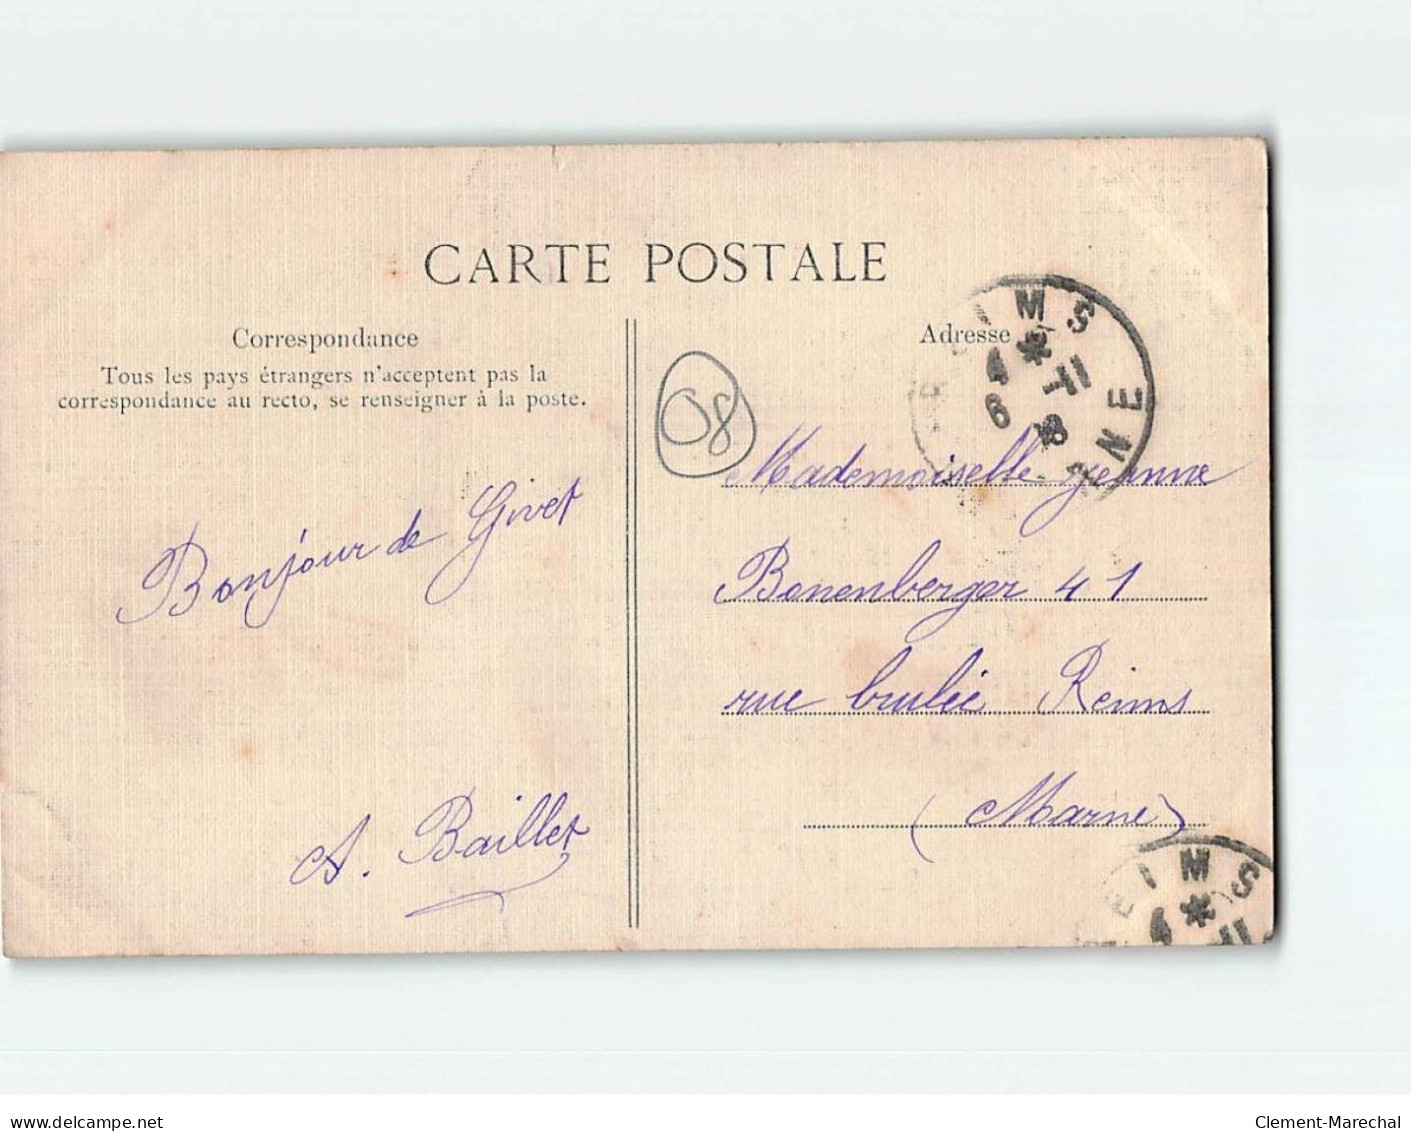 CARTE POSTALE
Correspondance
Tous les pays étrangers n'acceptent pas la
correspondance au recto, se renseigner à la poste.
Bonjour de Givet
A. Baillet
Adresse
08
Mademoiselle Jeanne
Bonenberger 41
rue brulée Reims
(Marne)
www.delcampe.net
Clement-Marechal